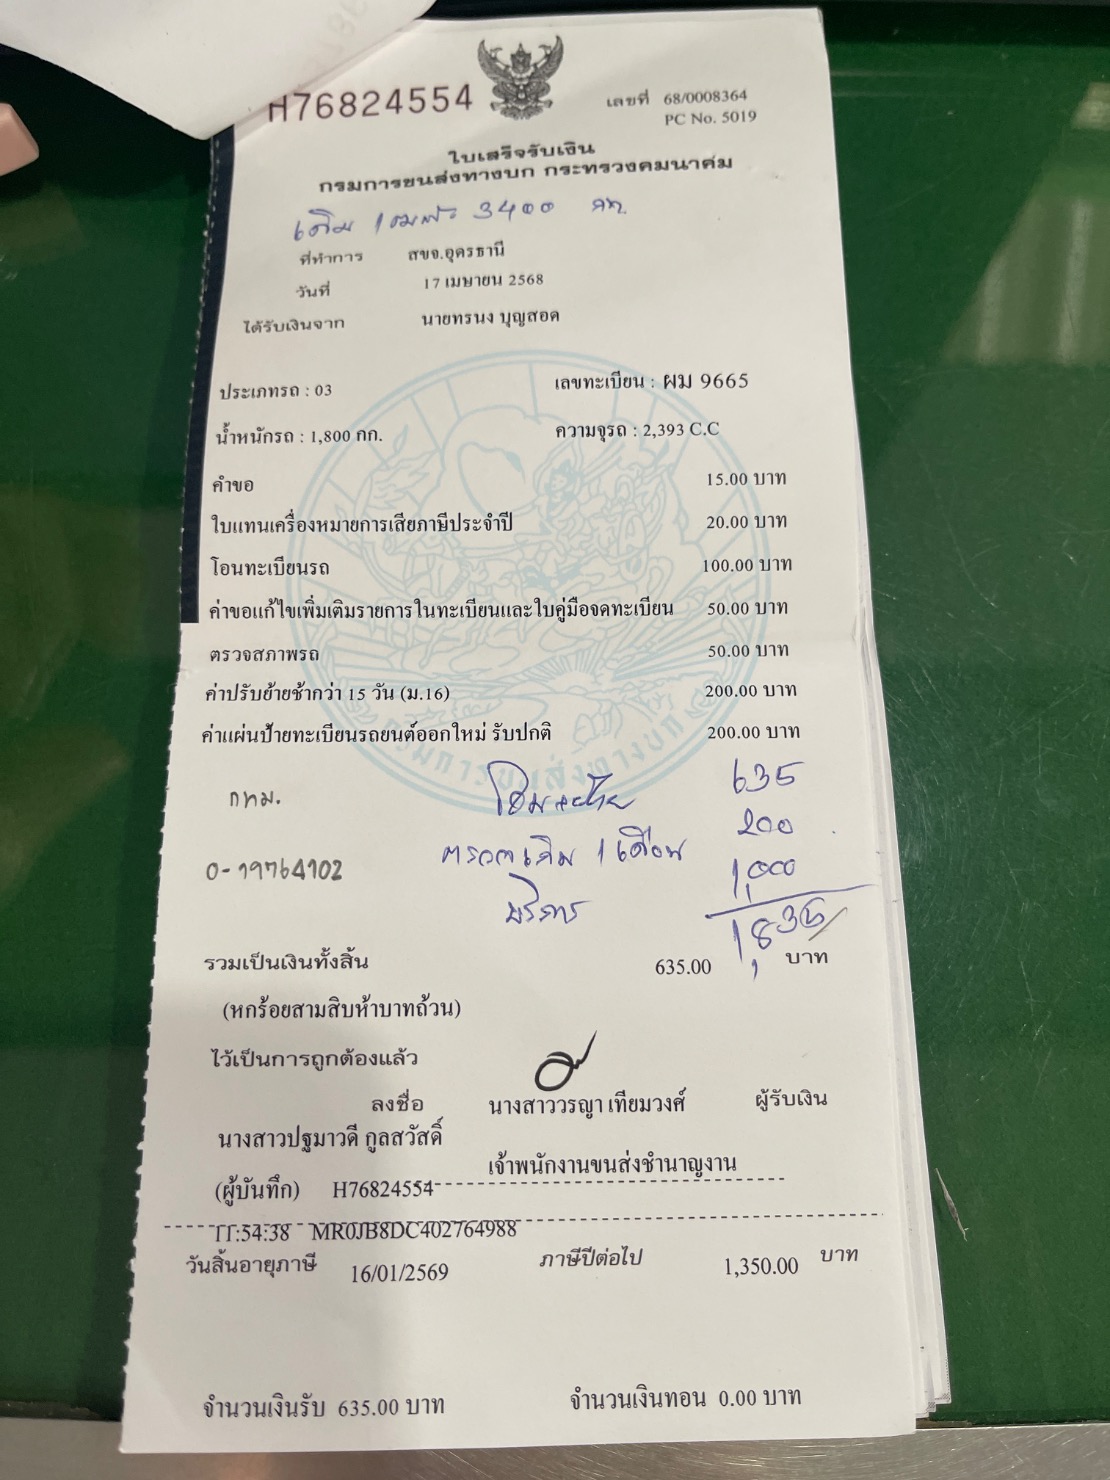 H76824554
เลขที่ 68/0008364
PC No. 5019
ใบเสร็จรับเงิน
กรมการขนส่งทางบก กระทรวงคมนาคม
3400
ที่ทำการ สขจ.อุดรธานี
วันที่ 17 เมษายน 2568
ได้รับเงินจาก นายทรนง บุญสอด
ประเภทรถ : 03 เลขทะเบียน : ผม 9665
น้ำหนักรถ : 1,800 กก. ความจุรถ : 2,393 C.C
คำขอ 15.00 บาท
ใบแทนเครื่องหมายการเสียภาษีประจำปี 20.00 บาท
โอนทะเบียนรถ 100.00 บาท
ค่าขอแก้ไขเพิ่มเติมรายการในทะเบียนและใบคู่มือจดทะเบียน 50.00 บาท
ตรวจสภาพรถ 50.00 บาท
ค่าปรับย้ายช้ากว่า 15 วัน (ม.16) 200.00 บาท
ค่าแผ่นป้ายทะเบียนรถยนต์ออกใหม่ รับปกติ 200.00 บาท
กรมการขนส่งทางบก
635
กทม. 200
0-19764102 1 เดือน 1,000
บริการ 1,835
รวมเป็นเงินทั้งสิ้น 635.00 บาท
(หกร้อยสามสิบห้าบาทถ้วน)
ไว้เป็นการถูกต้องแล้ว
ลงชื่อ นางสาววรญา เทียมวงศ์ ผู้รับเงิน
นางสาวปฐมาวดี กูลสวัสดิ์
เจ้าพนักงานขนส่งชำนาญงาน
(ผู้บันทึก) H76824554
11:54:38 MR0JB8DC402764988
วันสิ้นอายุภาษี 16/01/2569 ภาษีปีต่อไป 1,350.00 บาท
จำนวนเงินรับ 635.00 บาท จำนวนเงินทอน 0.00 บาท